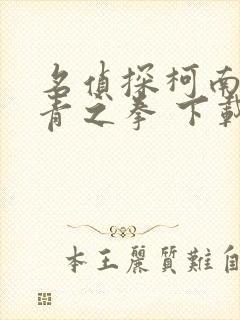 名偵探柯南
青之拳 下載
本王麗質難自